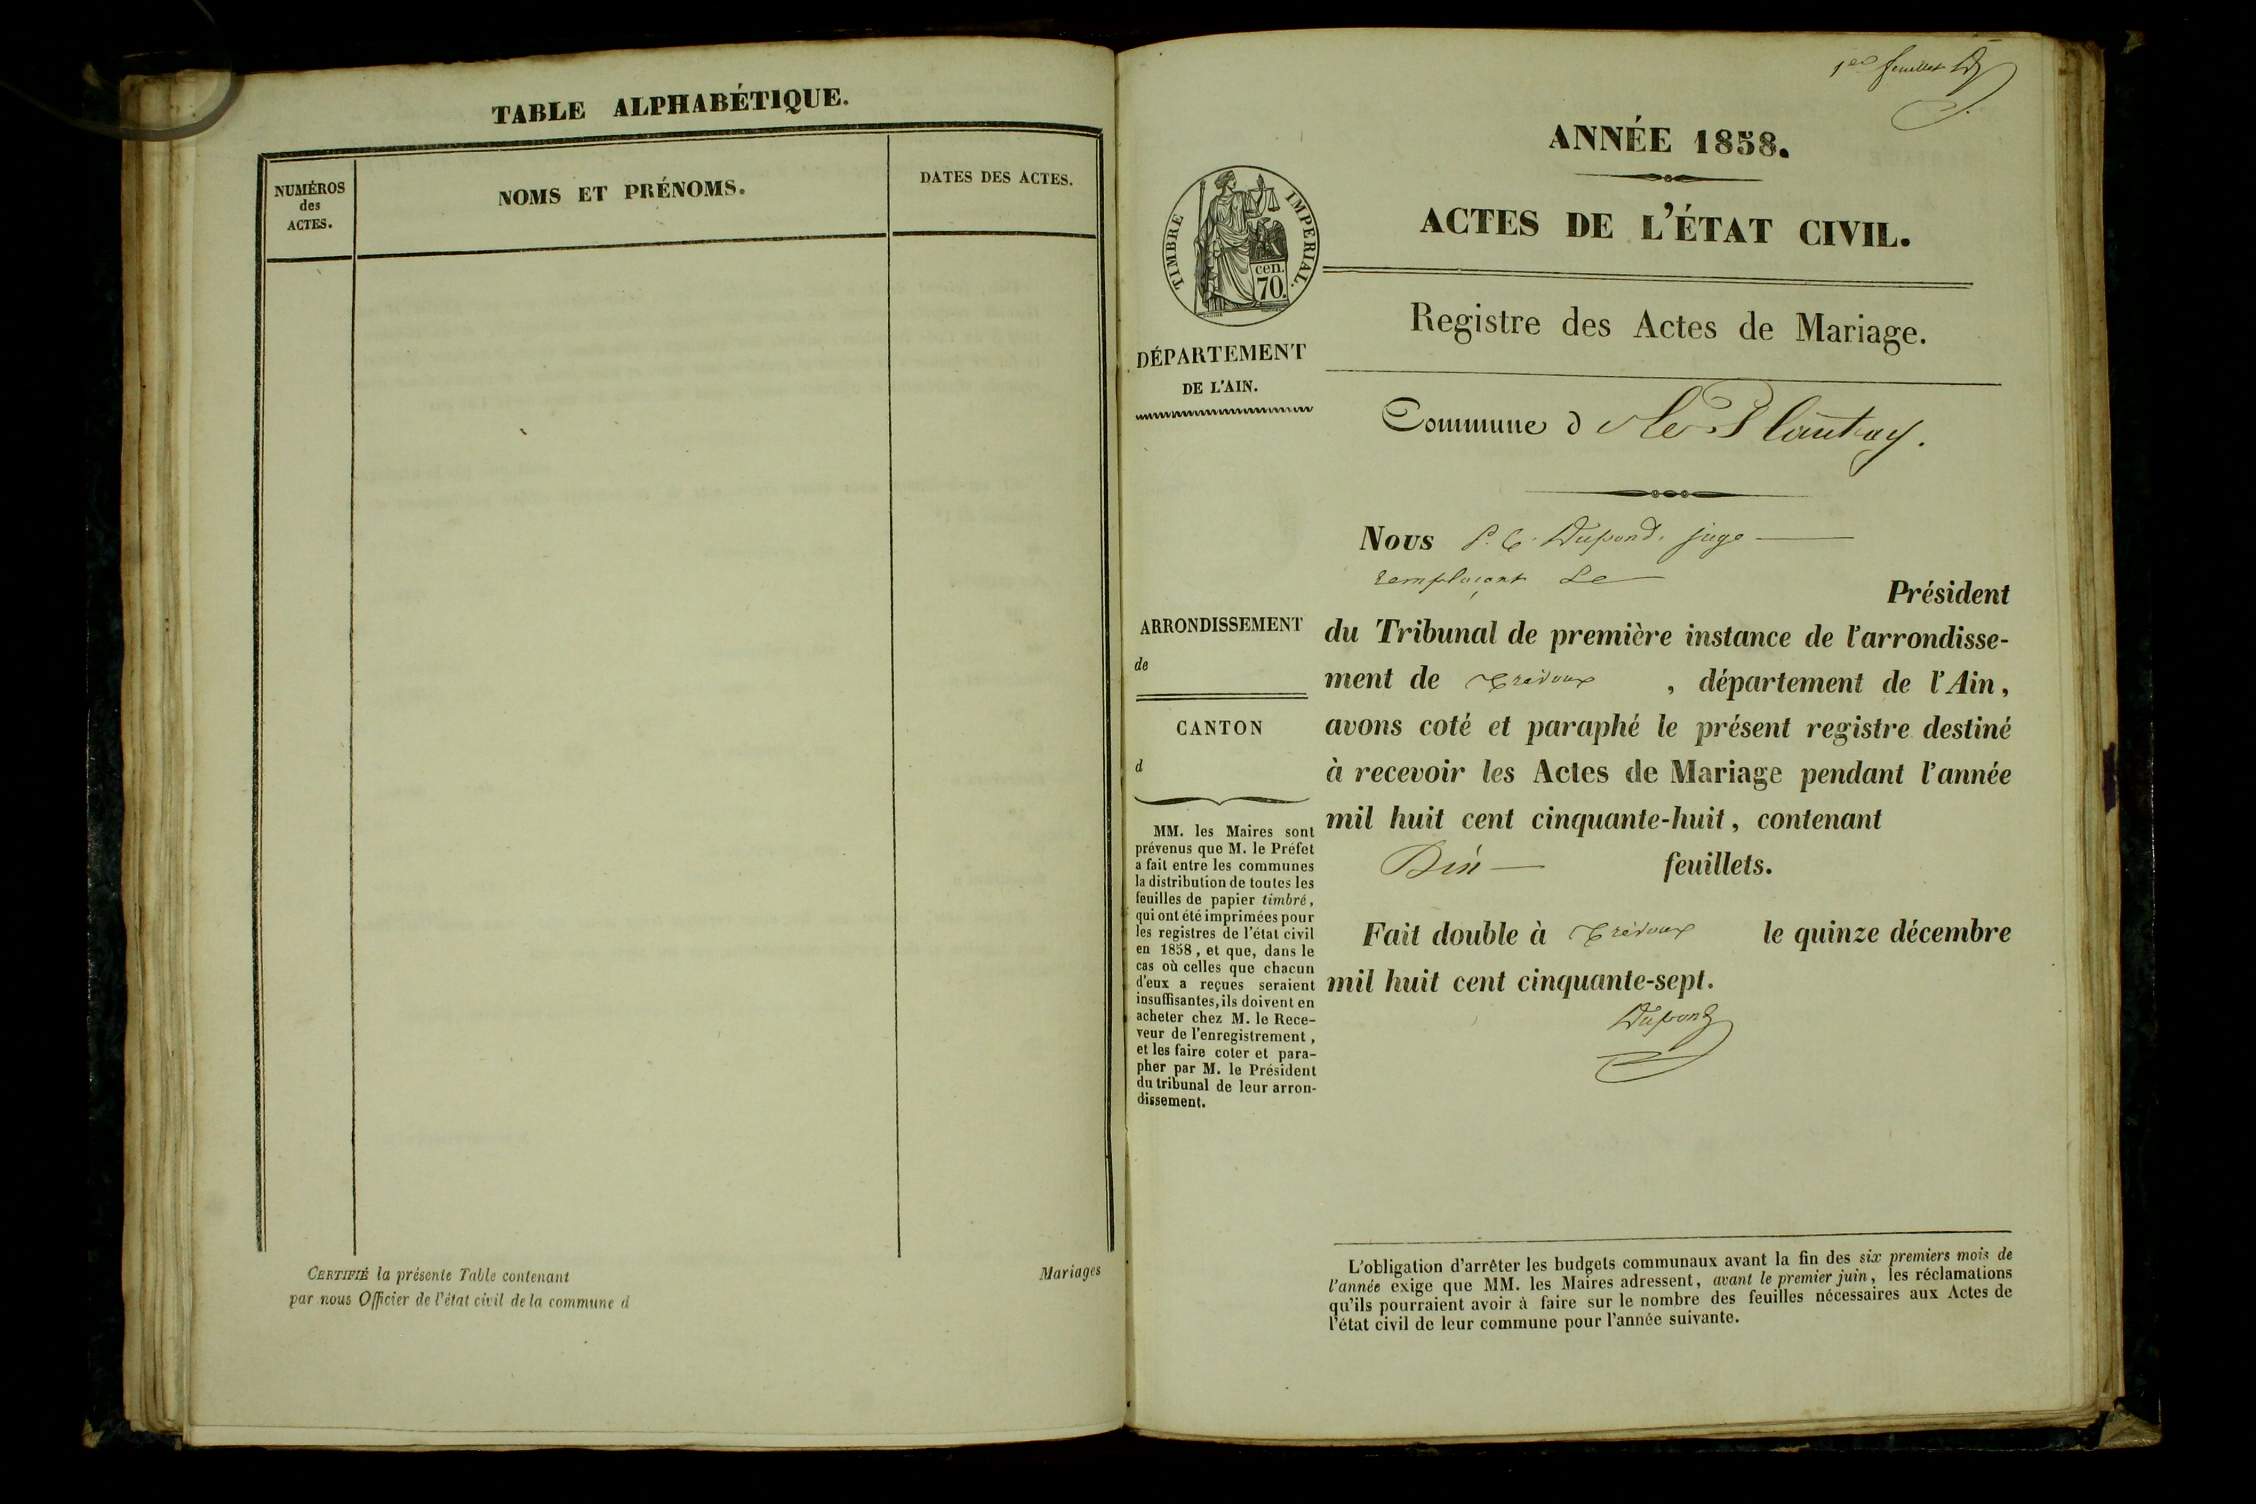 TABLE ALPHABÉTIQUE.
NUMÉROS
des
ACTES.
NOMS ET PRÉNOMS.
DATES DES ACTES.
CERTIFIÉ la présente Table contenant Mariages
par nous Officier de l'état civil de la commune d
1er feuillet
ANNÉE 1858.
ACTES DE L'ÉTAT CIVIL.
TIMBRE IMPERIAL.
cen.
70.
Registre des Actes de Mariage.
DÉPARTEMENT
DE L'AIN.
Commune d Le Plantay.
Nous P. C. Dupond, juge
remplaçant Le
Président
ARRONDISSEMENT
de
CANTON
d
du Tribunal de première instance de l'arrondisse-
ment de Trévoux , département de l'Ain,
avons coté et paraphé le présent registre destiné
à recevoir les Actes de Mariage pendant l'année
mil huit cent cinquante-huit, contenant
feuillets.
Fait double à Trévoux le quinze décembre
mil huit cent cinquante-sept.
Dupond
MM. les Maires sont
prévenus que M. le Préfet
a fait entre les communes
la distribution de toutes les
feuilles de papier timbré,
qui ont été imprimées pour
les registres de l'état civil
en 1858, et que, dans le
cas où celles que chacun
d'eux a reçues seraient
insuffisantes, ils doivent en
acheter chez M. le Rece-
veur de l'enregistrement,
et les faire coter et para-
pher par M. le Président
du tribunal de leur arron-
dissement.
L'obligation d'arrêter les budgets communaux avant la fin des six premiers mois de
l'année exige que MM. les Maires adressent, avant le premier juin, les réclamations
qu'ils pourraient avoir à faire sur le nombre des feuilles nécessaires aux Actes de
l'état civil de leur commune pour l'année suivante.